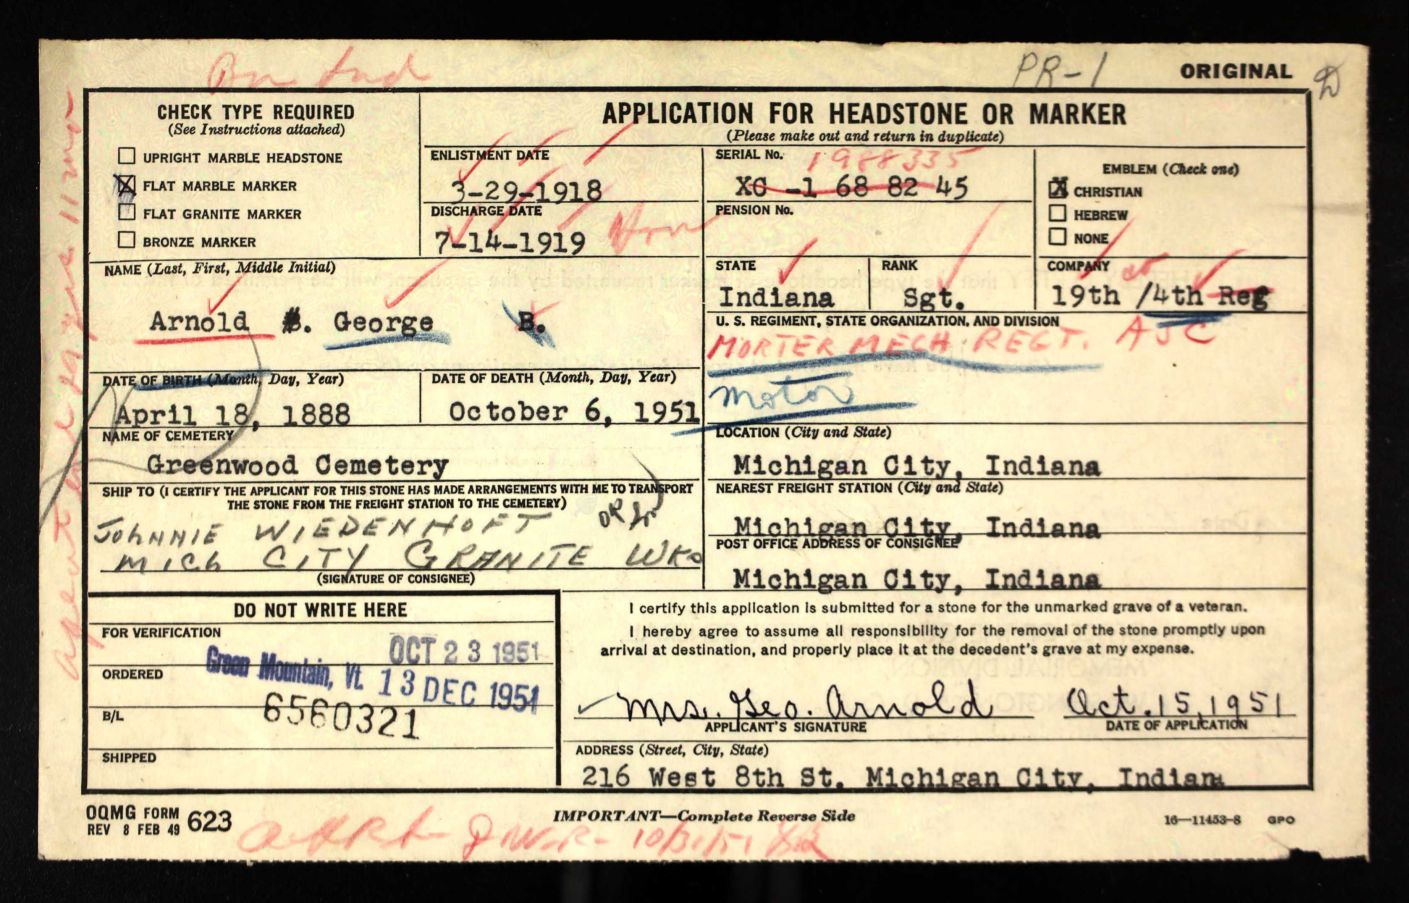 PR-1 ORIGINAL
CHECK TYPE REQUIRED
(See Instructions attached)
UPRIGHT MARBLE HEADSTONE
X FLAT MARBLE MARKER
FLAT GRANITE MARKER
BRONZE MARKER
APPLICATION FOR HEADSTONE OR MARKER
(Please make out and return in duplicate)
ENLISTMENT DATE
3-29-1918
DISCHARGE DATE
7-14-1919 Hon
SERIAL No. 1988335
XC -1 68 82 45
PENSION No.
EMBLEM (Check one)
X CHRISTIAN
HEBREW
NONE
NAME (Last, First, Middle Initial)
Arnold B. George B.
STATE
Indiana
RANK
Sgt.
COMPANY
19th /4th Reg
U. S. REGIMENT, STATE ORGANIZATION, AND DIVISION
MORTER MECH. REGT. ASC
Motor
DATE OF BIRTH (Month, Day, Year)
April 18, 1888
DATE OF DEATH (Month, Day, Year)
October 6, 1951
NAME OF CEMETERY
Greenwood Cemetery
LOCATION (City and State)
Michigan City, Indiana
SHIP TO (I CERTIFY THE APPLICANT FOR THIS STONE HAS MADE ARRANGEMENTS WITH ME TO TRANSPORT
THE STONE FROM THE FREIGHT STATION TO THE CEMETERY)
JOHNNIE WIEDENHOFT
MICH CITY GRANITE WKS
(SIGNATURE OF CONSIGNEE)
NEAREST FREIGHT STATION (City and State)
Michigan City, Indiana
POST OFFICE ADDRESS OF CONSIGNEE
Michigan City, Indiana
DO NOT WRITE HERE
FOR VERIFICATION
OCT 23 1951
ORDERED
Green Mountain, Vt. 13 DEC 1951
B/L
6560321
SHIPPED
I certify this application is submitted for a stone for the unmarked grave of a veteran.
I hereby agree to assume all responsibility for the removal of the stone promptly upon
arrival at destination, and properly place it at the decedent's grave at my expense.
Mrs. Geo. Arnold Oct. 15, 1951
APPLICANT'S SIGNATURE DATE OF APPLICATION
ADDRESS (Street, City, State)
216 West 8th St. Michigan City, Indiana
OQMG FORM 623
REV 8 FEB 49
IMPORTANT—Complete Reverse Side
16—11453-8 GPO
10/31/51